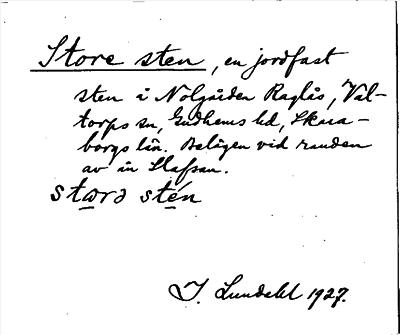 Store sten, en jordfast
sten i Nolgården Raglås, Val-
torps sn, Gudhems hd, Skara-
borgs län. Belägen vid randen
av ån Slafsan.
stɷrə stén
I. Lundahl 1927.